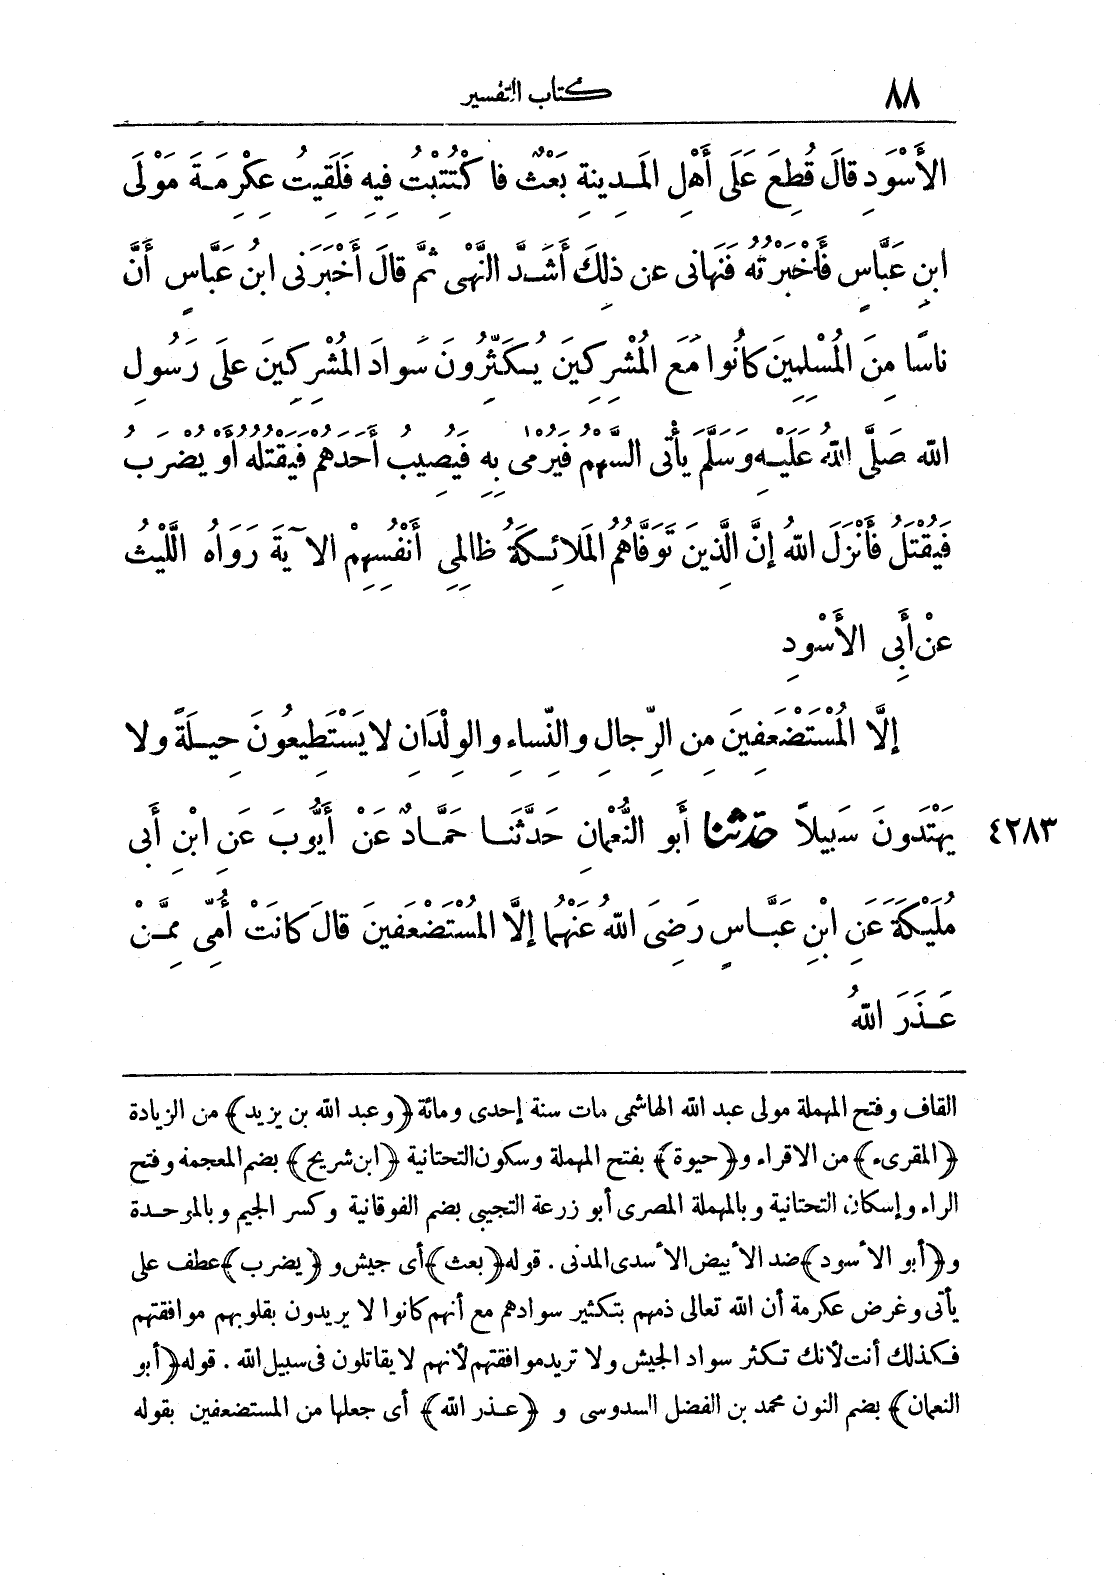 ٨٨ كتاب التفسير
الأَسْوَدِ قالَ قُطِعَ عَلَى أَهْلِ المَدِينَةِ بَعْثٌ فاكْتُتِبْتُ فِيهِ فَلَقِيتُ عِكْرِمَةَ مَوْلَى
ابنِ عَبَّاسٍ فَأَخْبَرْتُهُ فَنَهانى عن ذلِكَ أَشَدَّ النَّهْىِ ثُمَّ قالَ أَخْبَرَنى ابنُ عَبَّاسٍ أَنَّ
ناسًا مِنَ المُسْلِمِينَ كانُوا مَعَ المُشْرِكِينَ يُكَثِّرُونَ سَوادَ المُشْرِكِينَ علَى رَسُولِ
اللهِ صَلَّى اللهُ عَلَيْهِ وَسَلَّمَ يأْتى السَّهْمُ فَيُرْمى بِهِ فَيُصِيبُ أَحَدَهُمْ فَيَقْتُلُهُ أَوْ يُضْرَبُ
فَيُقْتَلُ فَأَنْزَلَ اللهُ إِنَّ الَّذِينَ تَوَفَّاهُمُ المَلائِكَةُ ظالِمِى أَنْفُسِهِمْ الآيَةَ رَوَاهُ اللَّيْثُ
عنْ أَبِى الأَسْوَدِ
إلَّا المُسْتَضْعَفِينَ مِنَ الرِّجالِ والنِّساءِ والوِلْدَانِ لا يَسْتَطِيعُونَ حِيلَةً ولا
٤٢٨٣ يَهْتَدُونَ سَبِيلاً حَدَّثنا أَبو النُّعْمانِ حَدَّثَنا حَمَّادٌ عَنْ أَيُّوبَ عَنِ ابْنِ أَبى
مُلَيْكَةَ عَنِ ابْنِ عَبَّاسٍ رَضِىَ اللهُ عَنْهُما إلَّا المُسْتَضْعَفِينَ قالَ كانَتْ أُمِّى مِمَّنْ
عَذَرَ اللهُ
القاف وفتح المهملة مولى عبد الله الهاشمى مات سنة إحدى ومائة ﴿وعبد الله بن يزيد﴾ من الزيادة
﴿المقرىء﴾ من الاقراء و﴿حيوة﴾ بفتح المهملة وسكون التحتانية ﴿ابن شريح﴾ بضم المعجمة وفتح
الراء وإسكان التحتانية وبالمهملة المصرى أبو زرعة التجيبى بضم الفوقانية وكسر الجيم وبالموحدة
و﴿أبو الأسود﴾ ضد الأبيض الأسدى المدنى . قوله ﴿بعث﴾ أى جيش و ﴿يضرب﴾ عطف على
يأتى وغرض عكرمة أن الله تعالى ذمهم بتكثير سوادهم مع أنهم كانوا لا يريدون بقلوبهم موافقتهم
فكذلك أنت لأنك تكثر سواد الجيش ولا تريد موافقتهم لأنهم لا يقاتلون فى سبيل الله . قوله ﴿أبو
النعمان﴾ بضم النون محمد بن الفضل السدوسى و ﴿عذر الله﴾ أى جعلها من المستضعفين بقوله